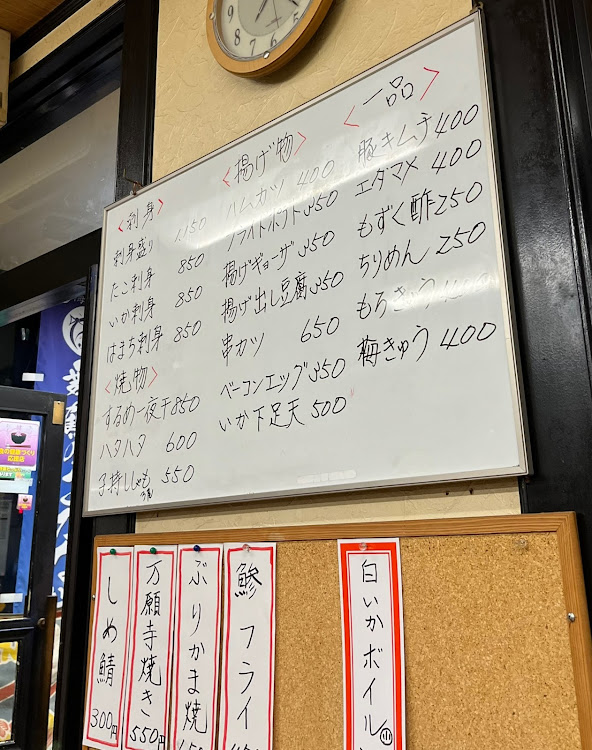 <刺身>
刺身盛り 1,150
たこ刺身 850
いか刺身 850
はまち刺身 850
<焼物>
するめ一夜干 850
ハタハタ 600
子持ししゃも 550
<揚げ物>
ハムカツ 400
フライトポテト 350
揚げギョーザ 350
揚げ出し豆腐 350
串カツ 650
ベーコンエッグ 350
いか下足天 500
<一品>
豚キムチ 400
エダマメ 400
もずく酢 250
ちりめん 250
もろきゅう
梅きゅう 400
しめ鯖 300円
万願寺焼き 550円
ぶりかま焼
鯵フライ
白いかボイル